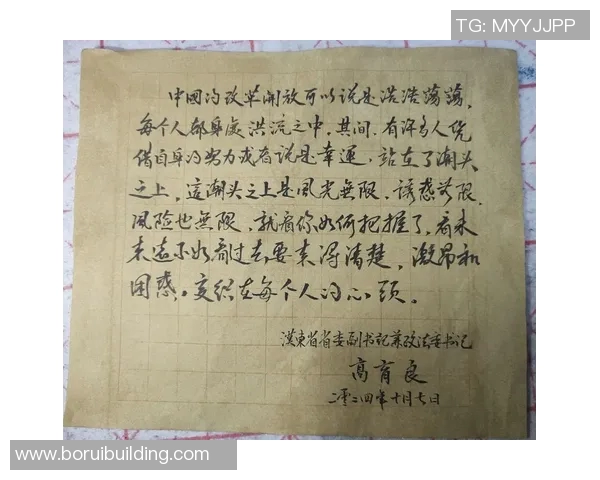 TG: MYYJJPP
中國的改革開放可以说是浩浩蕩蕩，
每个人都身處洪流之中，其间，有许多人凭
借自身的努力或者说是幸運，站在了潮头
之上，這潮头之上是風光無限，誘惑無限，
風险也無限，就看你如何把握了，看未
来远不如看过去要来得清楚，激昂和
困惑，交织在每个人的心頭。
漢東省省委副书记兼政法委书记
高育良
二零二四年十月七日
www.boruibuilding.com